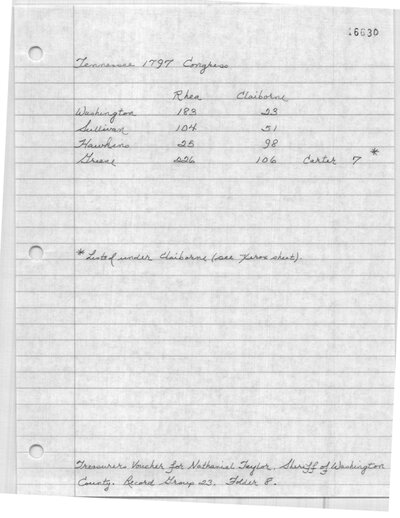 16630
Tennessee 1797 Congress
Rhea Claiborne
Washington 183 23
Sullivan 104 51
Hawkins 25 98
Greene 226 106 Carter 7 *
* Listed under Claiborne (see Xerox sheet).
Treasurers Voucher for Nathanial Taylor, Sheriff of Washington
County. Record Group 23, Folder 8.